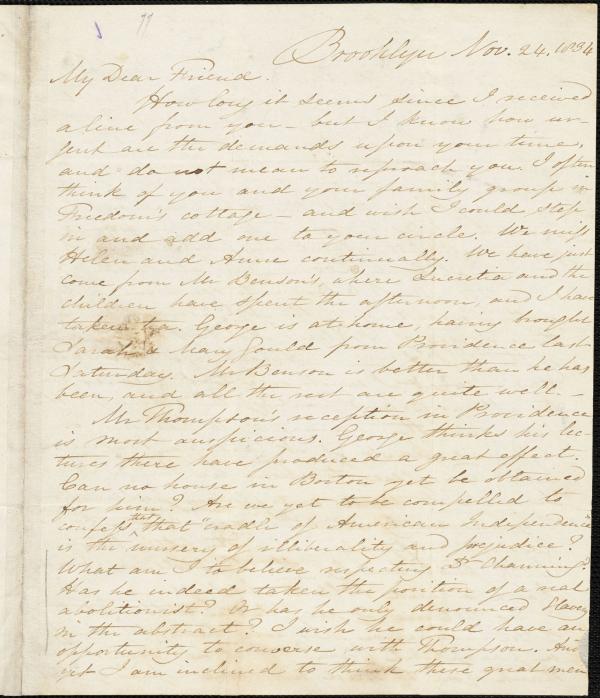 Brooklyn Nov. 24. 1834
My Dear Friend.
How long it seems since I received
a line from you – but I know how ur-
gent are the demands upon your time,
and do not mean to reproach you. I often
think of you and your family group in
Freedom's cottage – and wish I could stop
in and add one to your circle. We miss
Helen and Anne continually. We have just
come from Mr Benson's, where Lucretia and the
children have spent the afternoon, and I have
taken tea. George is at home, having brought
Sarah & Mary Gould from Providence last
Saturday. Mr Benson is better than he has
been, and all the rest are quite well. –
Mr Thompson's reception in Providence
is most auspicious. George thinks his lec-
tures there have produced a great effect.
Can no house in Boston yet be obtained
for him? Are we yet to be compelled to
confess that that "cradle of American Independence"
is the nursery of illiberality and prejudice?
What am I to believe respecting Dr Channing?
Has he indeed taken the position of a real
abolitionist? Or has he only denounced slavery
in the abstract? I wish he could have an
opportunity to converse with Thompson. And
yet I am inclined to think these great men